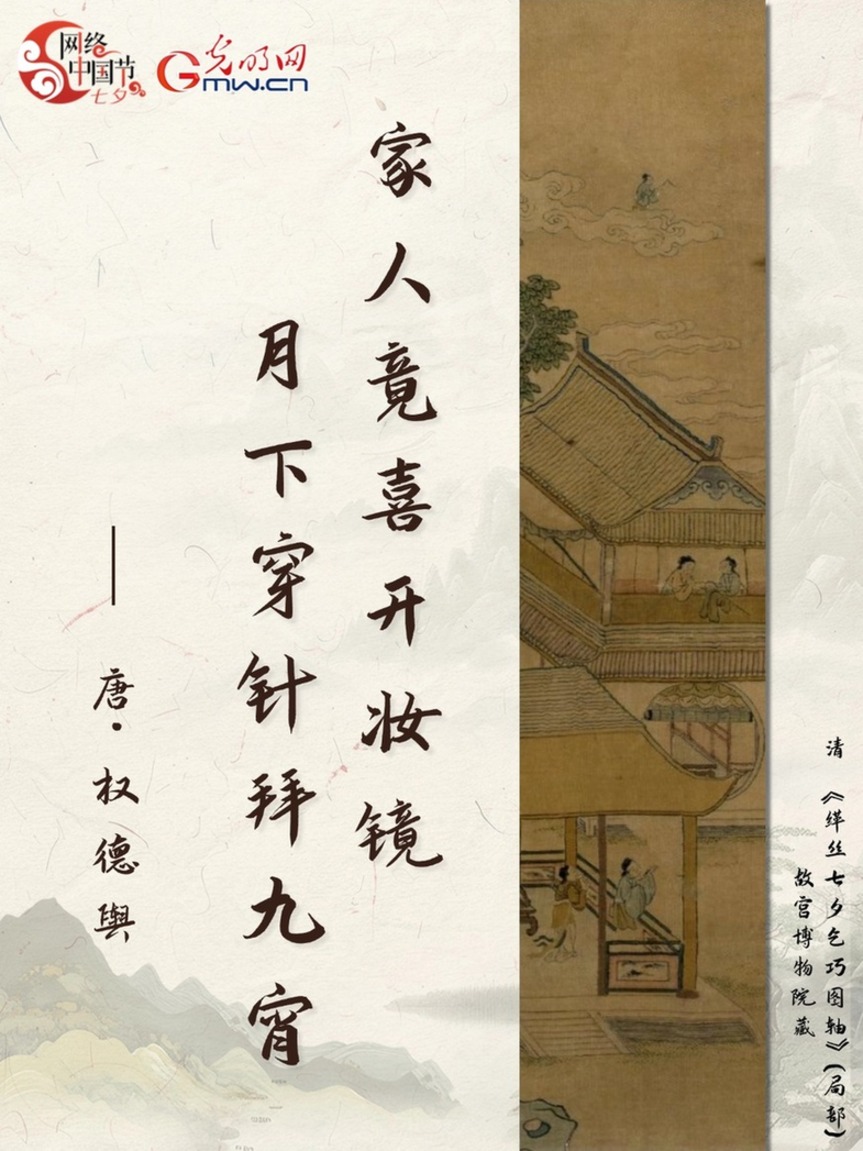 网络
中国节
七夕
光明网
Gmw.cn
家人竟喜开妆镜
月下穿针拜九宵
——唐·权德舆
清 《缂丝七夕乞巧图轴》(局部)
故宫博物院藏